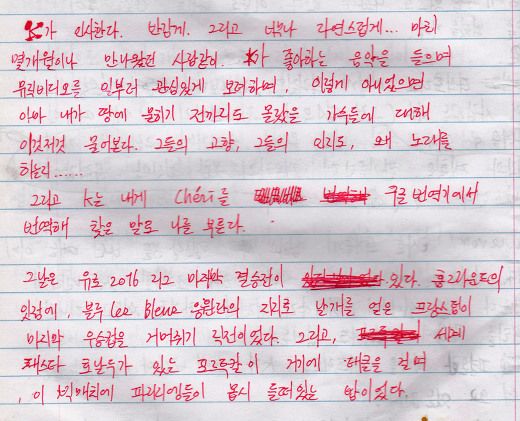 K가 인사한다. 반갑게. 그리고 너무나 자연스럽게... 마치
몇개월이나 만나왔던 사람같이. K가 좋아하는 음악을 들으며
뮤직비디오를 일부러 관심있게 보려하며, 이렇게 아니었으면
아마 내가 땅에 묻히기 전까지도 몰랐을 가수들에 대해
이것저것 물어본다. 그들의 고향, 그들의 의도, 왜 노래를
하는지......
그리고 K는 내게 Chéri를 구글 번역기에서
번역해 찾은 말로 나를 부른다.
그날은 유로 2016 리그 마지막 결승전이 있다. 홈그라운드의
잇점에, 블루 Les Bleus 응원단의 지지로 날개를 얻은 프랑스팀이
마지막 우승컵을 거머쥐기 직전이었다. 그리고, 세계
호날두가 있는 포르투칼이 거기에 태클을 걸며
, 이 빅매치에 파리지엥들이 몹시 들떠있는 밤이었다.